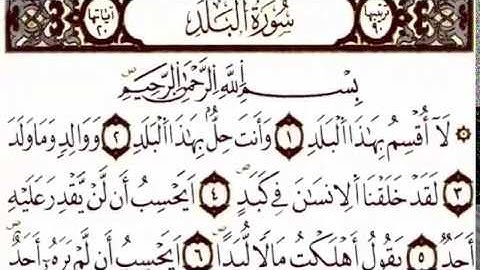 ترتيبها ٩٠
سُورَةُ الْبَلَدِ
آياتها ٢٠
بِسْمِ اللَّهِ الرَّحْمَٰنِ الرَّحِيمِ
لَا أُقْسِمُ بِهَٰذَا الْبَلَدِ ١ وَأَنتَ حِلٌّ بِهَٰذَا الْبَلَدِ ٢ وَوَالِدٍ وَمَا وَلَدَ
٣ لَقَدْ خَلَقْنَا الْإِنسَانَ فِي كَبَدٍ ٤ أَيَحْسَبُ أَن لَّن يَقْدِرَ عَلَيْهِ
أَحَدٌ ٥ يَقُولُ أَهْلَكْتُ مَالًا لُّبَدًا ٦ أَيَحْسَبُ أَن لَّمْ يَرَهُ أَحَدٌ